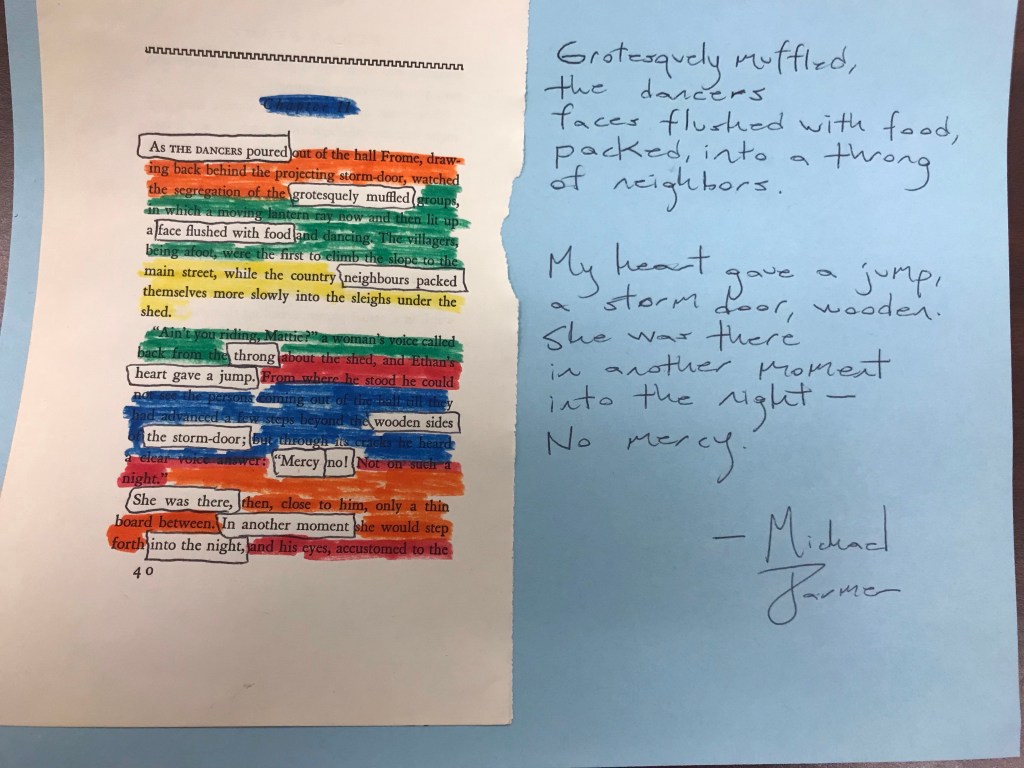 Chapter II
AS THE DANCERS poured out of the hall Frome, draw-
ing back behind the projecting storm-door, watched
the segregation of the grotesquely muffled groups,
in which a moving lantern ray now and then lit up
a face flushed with food and dancing. The villagers,
being afoot, were the first to climb the slope to the
main street, while the country neighbours packed
themselves more slowly into the sleighs under the
shed.
"Ain't you riding, Mattie?" a woman's voice called
back from the throng about the shed, and Ethan's
heart gave a jump. From where he stood he could
not see the persons coming out of the hall till they
had advanced a few steps beyond the wooden sides
of the storm-door; but through its cracks he heard
a clear voice answer: "Mercy no! Not on such a
night."
She was there, then, close to him, only a thin
board between. In another moment she would step
forth into the night, and his eyes, accustomed to the
40
Grotesquely muffled,
the dancers
faces flushed with food,
packed, into a throng
of neighbors.
My heart gave a jump,
a storm door, wooden.
She was there
in another moment
into the night —
No mercy.
— Michael
Parmer